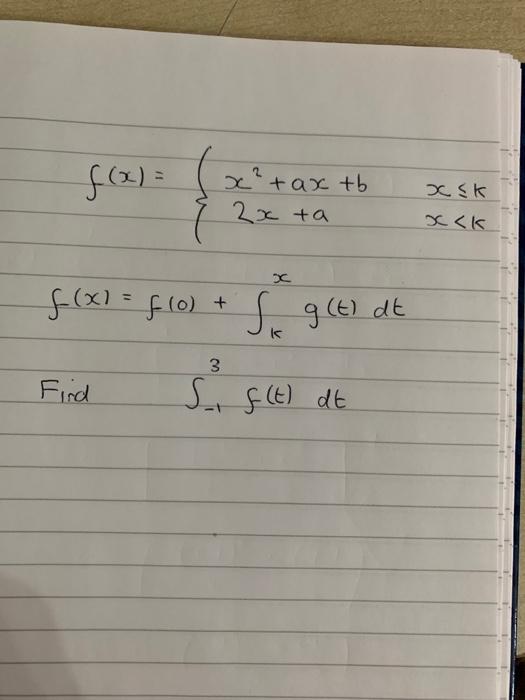 f(x) = { x² + ax + b   x ≤ k
2x + a   x < k
f(x) = f(0) + ∫ₖˣ g(t) dt
Find ∫₋₁³ f(t) dt